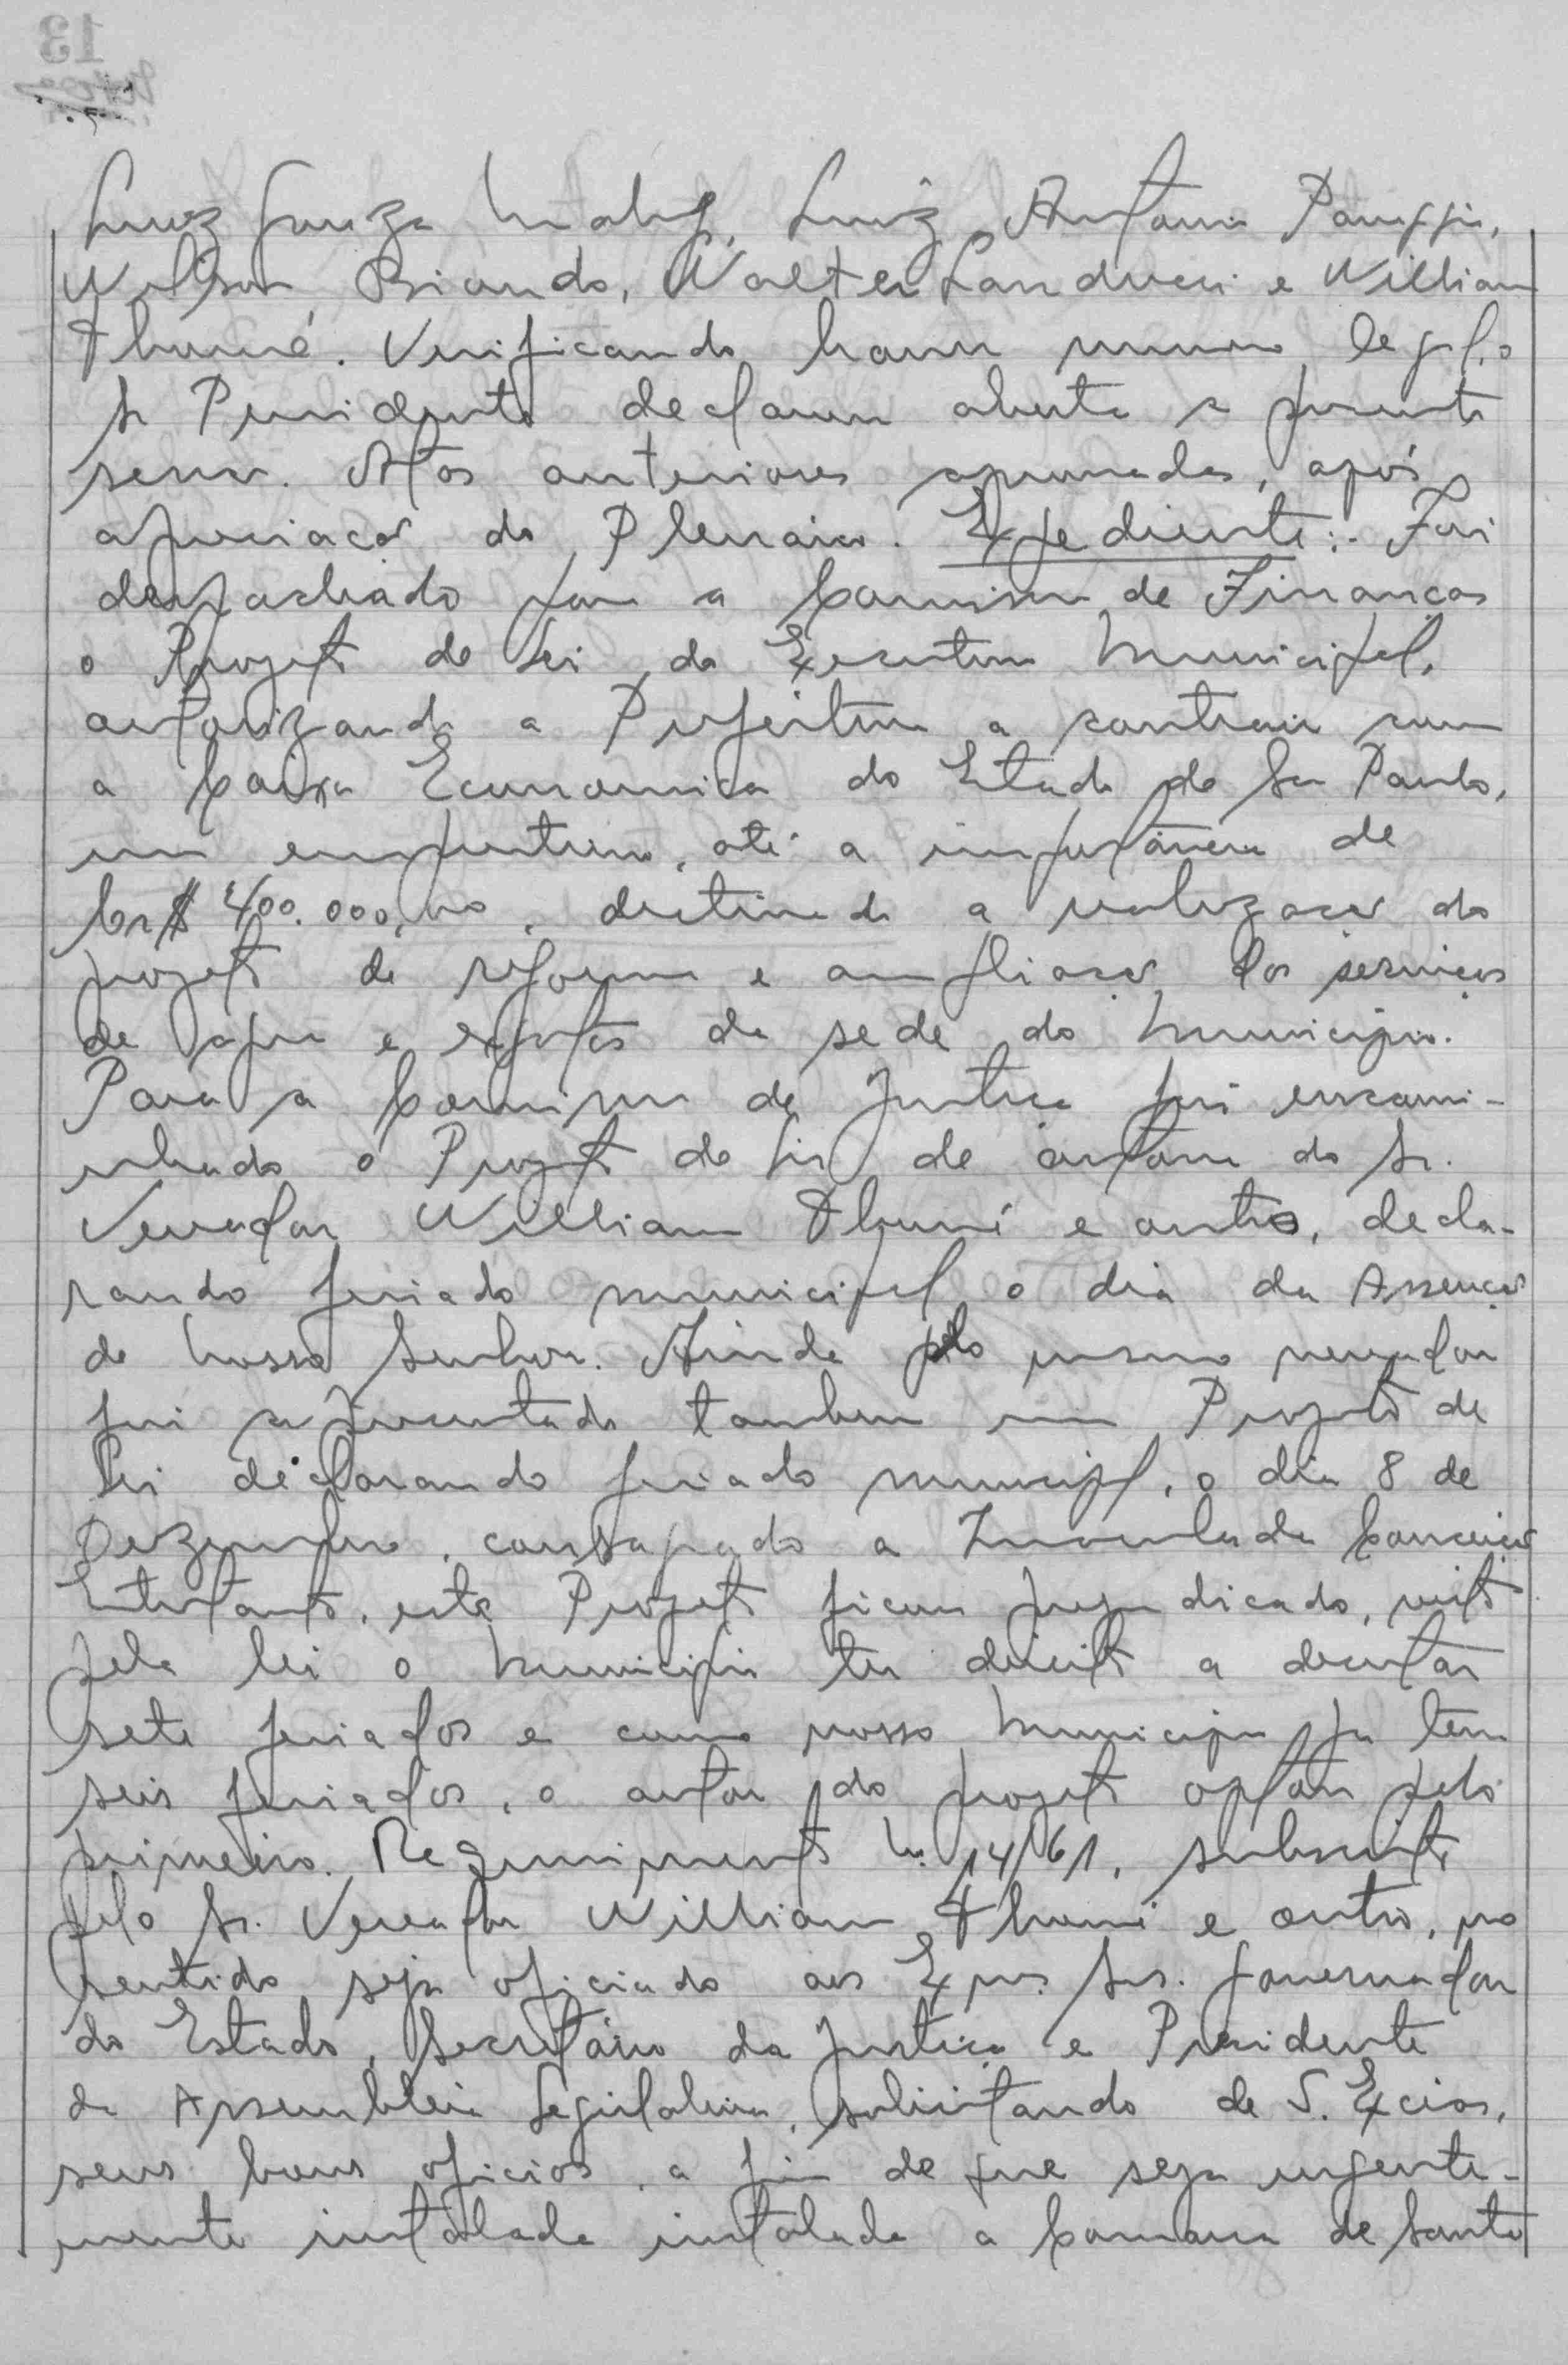 Luiz Souza, Luiz Antonio
Wilson Biando, Walter Landucci e William
Thomé. Verificando haver numero legal, o
Sr Presidente declarou aberta a presente
sessão. Atas anteriores aprovadas, após
apreciacão do Plenário. Expediente:- Foi
despachado para a Comissão de Financas
o Projeto de Lei do Executivo Municipal,
autorizando a Prefeitura a contrair com
a Caixa Economica do Estado de São Paulo,
um emprestimo, até a importância de
Cr$ 400.000,00, destinado a realização do
projeto de reforma e ampliação dos serviços
de agua e esgotos da sede do Municipio.
Para a Comissão de Justica foi encami-
nhado o Projeto de Lei de autoria do Sr.
Vereador William Thomé e outros, decla-
rando feriado municipal o dia da Assenção
de Nosso Senhor. Ainda pelo mesmo vereador
foi apresentado tambem um Projeto de
Lei declarando feriado municipal, o dia 8 de
Dezembro, consagrado a Imaculada Conceição
Entretanto, este Projeto ficou prejudicado, visto
pela lei o Municipio ter direito a decretar
sete feriados e como nosso Municipio ja tem
seis feriados, o autor do projeto optou pelo
primeiro. Requerimento N. 14/61, subscrito
pelo Sr. Vereador William Thomé e outro, no
sentido seja oficiado aos Exmos. Srs. Governador
do Estado, Secretário da Justiça e Presidente
da Assembléia Legislativa, solicitando de S. Excias,
seus bons oficios, a fim de que seja urgente-
mente instalada instalada a Comarca de Santo